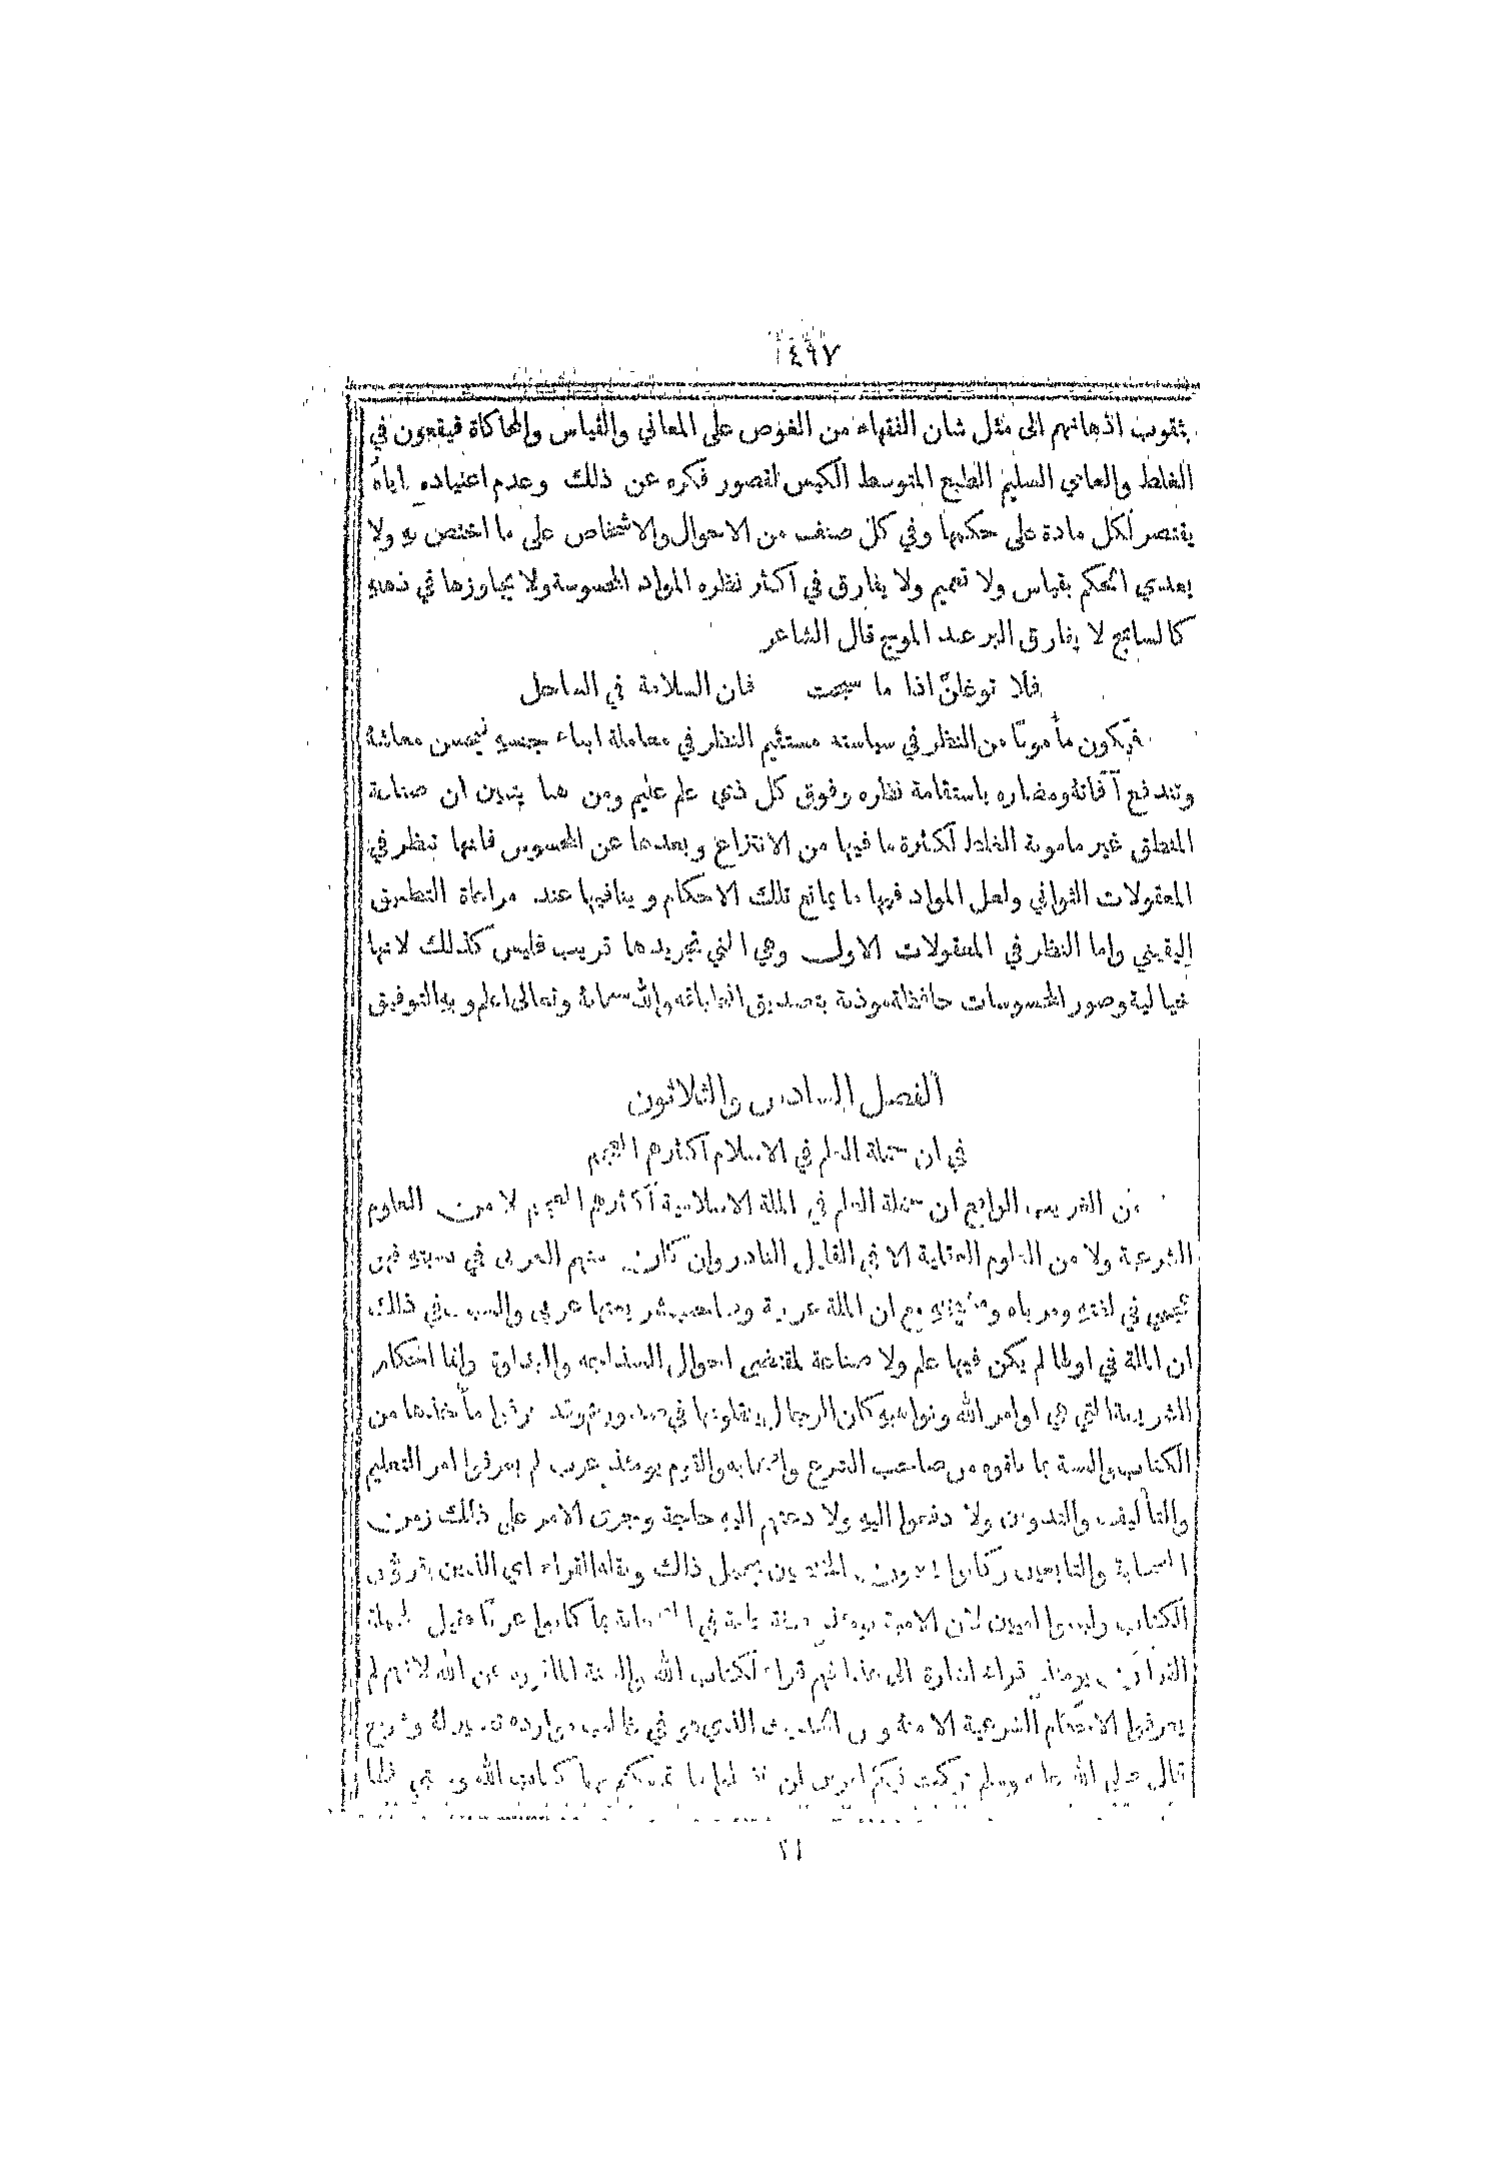 ٤٩٧
بثقوب اذهانهم الى مثل شان الفقهاء من الغوص على المعاني والقياس والمحاكاة فيقعون في
الغلط والعامي السليم الطبع المتوسط الكيس لقصور فكره عن ذلك وعدم اعتياده اياهُ
يقتصر لكل مادة على حكمها وفي كل صنف من الاحوال والاشخاص على ما اختص بهِ ولا
يعدي الحكم بقياس ولا تعميم ولا يفارق في اكثر نظره المواد المحسوسة ولا يجاوزها في ذهنهِ
كالسابح لا يفارق البر عند الموج قال الشاعر
فلا توغلنّ اذا ما سبحت فان السلامة في الساحل
فيكون مأموناً من النظر في سياسته مستقيم النظر في معاملة ابناء جنسهِ فيحسن معاشهُ
وتندفع آفاتهُ ومضاره باستقامة نظره وفوق كل ذي علم عليم ومن هنا يتبين ان صناعة
المنطق غير مامونة الغلط لكثرة ما فيها من الانتزاع وبعدها عن المحسوس فانها تنظر في
المعقولات الثواني ولعل المواد فيها ما يمانع تلك الاحكام وينافيها عند مراعاة التطبيق
اليقيني واما النظر في المعقولات الاول وهي التي تجريدها قريب فليس كذلك لانها
خيالية وصور المحسوسات حافظة موذنة بتصديق انطباقه والله سبحانهُ وتعالى اعلم وبهِ التوفيق
الفصل السادس والثلاثون
في ان حملة العلم في الاسلام اكثرهم العجم
من الغريب الواقع ان حملة العلم في الملة الاسلامية اكثرهم العجم لا من العلوم
الشرعية ولا من العلوم العقلية الا في القليل النادر وان كان منهم العربي في نسبتهِ فهو
عجمي في لغتهِ ومرباه ومشيختهِ مع ان الملة عربية وصاحب شريعتها عربي والسبب في ذلك
ان الملة في اولها لم يكن فيها علم ولا صناعة لمقتضى احوال السذاجه والبداوة وانما احكام
الشريعة التي هي اوامر الله ونواهيهِ كان الرجال ينقلونها في صدورهم وقد عرفوا مأخذها من
الكتاب والسنة بما تلقوه من صاحب الشرع واصحابه والقوم يومئذٍ عرب لم يعرفوا امر التعليم
والتأليف والتدوين ولا دفعوا اليهِ ولا دعتهم اليهِ حاجة وجرى الامر على ذلك زمن
الصحابة والتابعين وكانوا يسمون المختصين بحمل ذلك ونقله القراء اي الذين يقرؤُن
الكتاب وليسوا اميين لان الامية يومئذٍ صفة عامة في الصحابة بما كانوا عرباً فقيل لحملة
القرآن يومئذٍ قراء اشارة الى هذا فهم قراء لكتاب الله والسنة الماثورة عن الله لانهم لم
يعرفوا الاحكام الشرعية الا منهُ ومن الحديث الذي هو في غالب موارده تفسير لهُ وشرح
قال صلى الله عليه وسلم تركت فيكم امرين لن تضلوا ما تمسكتم بهما كتاب الله وسنتي فلما